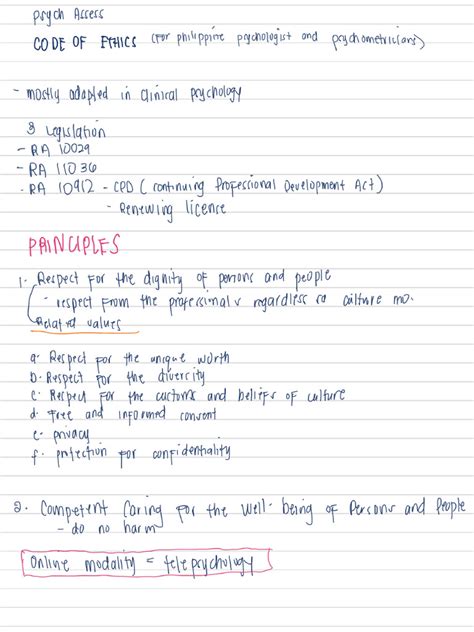 Psych Assess
CODE OF ETHICS (for philippine psychologist and psychometricians)
- mostly adapted in clinical psychology
3 Legislation
- RA 10029
- RA 11036
- RA 10912 - CPD (continuing Professional Development Act)
- Renewing licence
PRINCIPLES
1. Respect for the dignity of persons and people
- respect from the professionals regardless sa culture mo.
Related values
a. Respect for the unique worth
b. Respect for the diversity
c. Respect for the customs and beliefs of culture
d. Free and informed consent
e. privacy
f. protection for confidentiality
2. Competent Caring for the well-being of Persons and People
- do no harm
Online modality = telepsychology